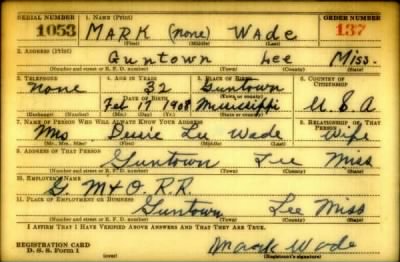 SERIAL NUMBER 1. NAME (Print) ORDER NUMBER
1053 MARK (none) Wade 137
(First) (Middle) (Last)
2. ADDRESS (Print)
Guntown Lee Miss.
(Number and street or R. F. D. number) (Town) (County) (State)
3. TELEPHONE 4. AGE IN YEARS 5. PLACE OF BIRTH 6. COUNTRY OF
CITIZENSHIP
None 32 Guntown
DATE OF BIRTH (Town or county)
Feb 17 1908 Mississippi U.S.A
(Exchange) (Number) (Mo.) (Day) (Yr.) (State or country)
7. NAME OF PERSON WHO WILL ALWAYS KNOW YOUR ADDRESS 8. RELATIONSHIP OF THAT
PERSON
Mrs Lee Wade Wife
(Mr., Mrs., Miss) (First) (Middle) (Last)
9. ADDRESS OF THAT PERSON
Guntown Lee Miss
(Number and street or R. F. D. number) (Town) (County) (State)
10. EMPLOYER'S NAME
G. M & O. R.R.
11. PLACE OF EMPLOYMENT OR BUSINESS
Guntown Lee Miss
(Number and street or R. F. D. number) (Town) (County) (State)
I AFFIRM THAT I HAVE VERIFIED ABOVE ANSWERS AND THAT THEY ARE TRUE.
REGISTRATION CARD Mark Wade
D. S. S. Form 1 (over) (Registrant's signature)